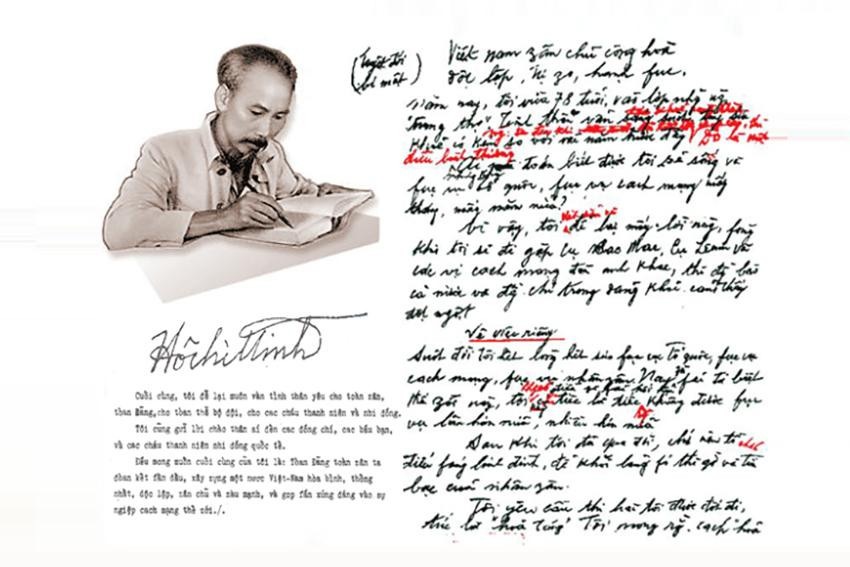 Hồ Chí Minh
Cuối cùng, tôi để lại muôn vàn tình thân yêu cho toàn zân,
toàn Đảng, cho toàn thể bộ đội, cho các cháu thanh niên và nhi đồng.
Tôi cũng gửi lời chào thân ái đến các đồng chí, các bầu bạn,
và các cháu thanh niên nhi đồng quốc tế.
Điều mong muốn cuối cùng của tôi là: Toàn Đảng toàn zân ta
đoàn kết fấn đấu, xây zựng một nước Việt-Nam hòa bình, thống
nhất, độc lập, zân chủ và zàu mạnh, và góp fần xứng đáng vào sự
ngiệp cách mạng thế zới./.
(tuyệt đối
bí mật)
Việt nam zân chủ cộng hoà
độc lập, tự zo, hạnh fúc.
Năm nay, tôi vừa 78 tuổi, vào lớp những người
"trung thọ" Tinh thần vẫn
khoẻ có kém so với vài năm trước đây Đó là một
điều bình thường
toán biết được tôi sẽ sống và
fục vụ tổ quốc, fục vụ cách mạng mấy
tháng, mấy năm nữa?
Vì vậy, tôi để lại mấy lời này, fòng
khi tôi sẽ đi gặp cụ Các Mác, cụ Lênin và
các vị cách mạng đàn anh khác, thì đồng bào
cả nước và đồng chí trong đảng khỏi cảm thấy
đột ngột
Về việc riêng
Suốt đời tôi hết lòng hết sức fục vụ Tổ quốc, fục vụ
cách mạng, fục vụ nhân zân. Nay zù fải từ biệt
thế zới này, tôi tiếc là tiếc không được fục
vụ lâu hơn nữa, nhiều hơn nữa
Sau khi tôi đã qua đời, chớ nên tổ chức
điếu fúng linh đình, để khỏi lãng fí thì zờ và tiền
bạc của nhân zân.
Tôi yêu cầu thi hài tôi được đốt đi,
tức là "hoả táng" Tôi mong rằng cách "hoả